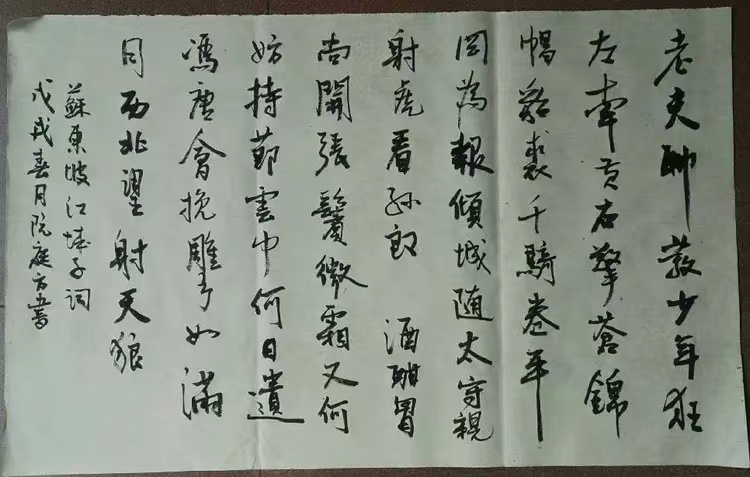 老夫聊發少年狂
左牽黄右擎蒼錦
帽貂裘千騎卷平
岡為報傾城随太守親
射虎看孫郎 酒酣胷
尚開張鬢微霜又何
妨持節雲中何日遣
馮唐會挽雕弓如滿
月西北望射天狼
蘇東坡江城子詞
戊戌春月阮庭方書